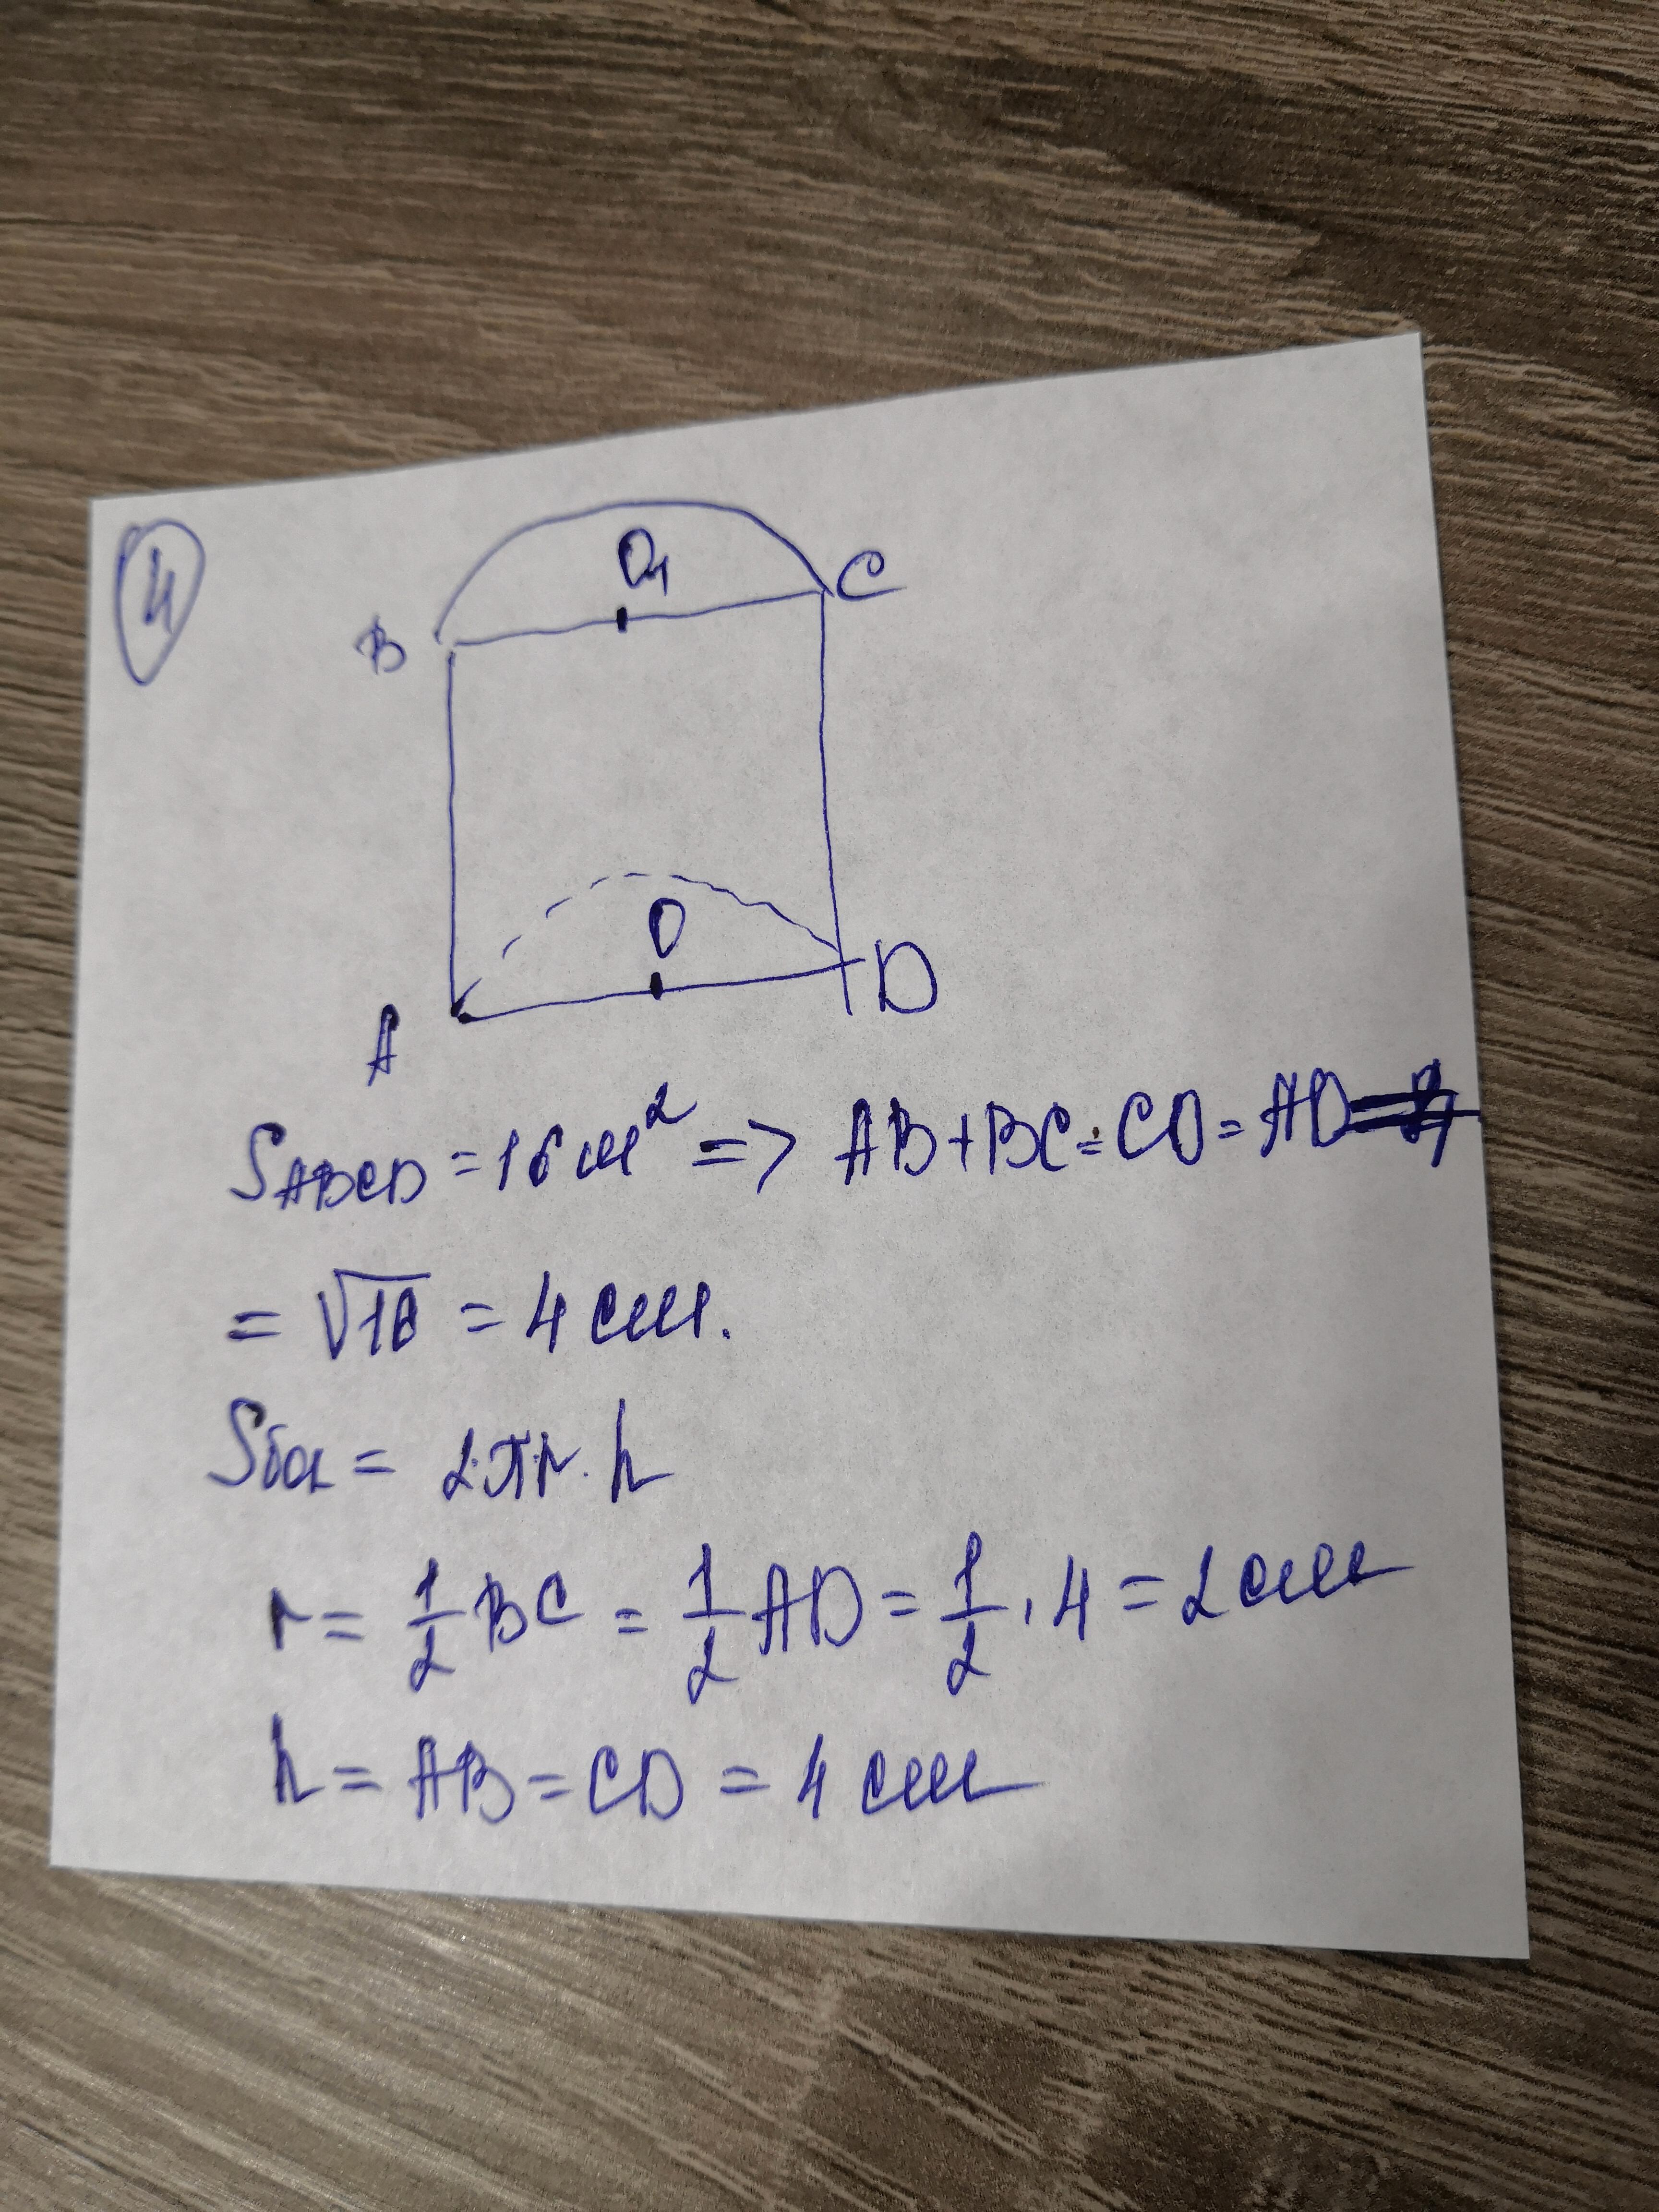 4
O₁
C
B
O
D
A
S ABCD = 16 см² => AB+BC=CD=AD
= √16 = 4 см.
Sбок = 2·π·r·h
r = 1/2 BC = 1/2 AD = 1/2 · 4 = 2 см
h = AB = CD = 4 см